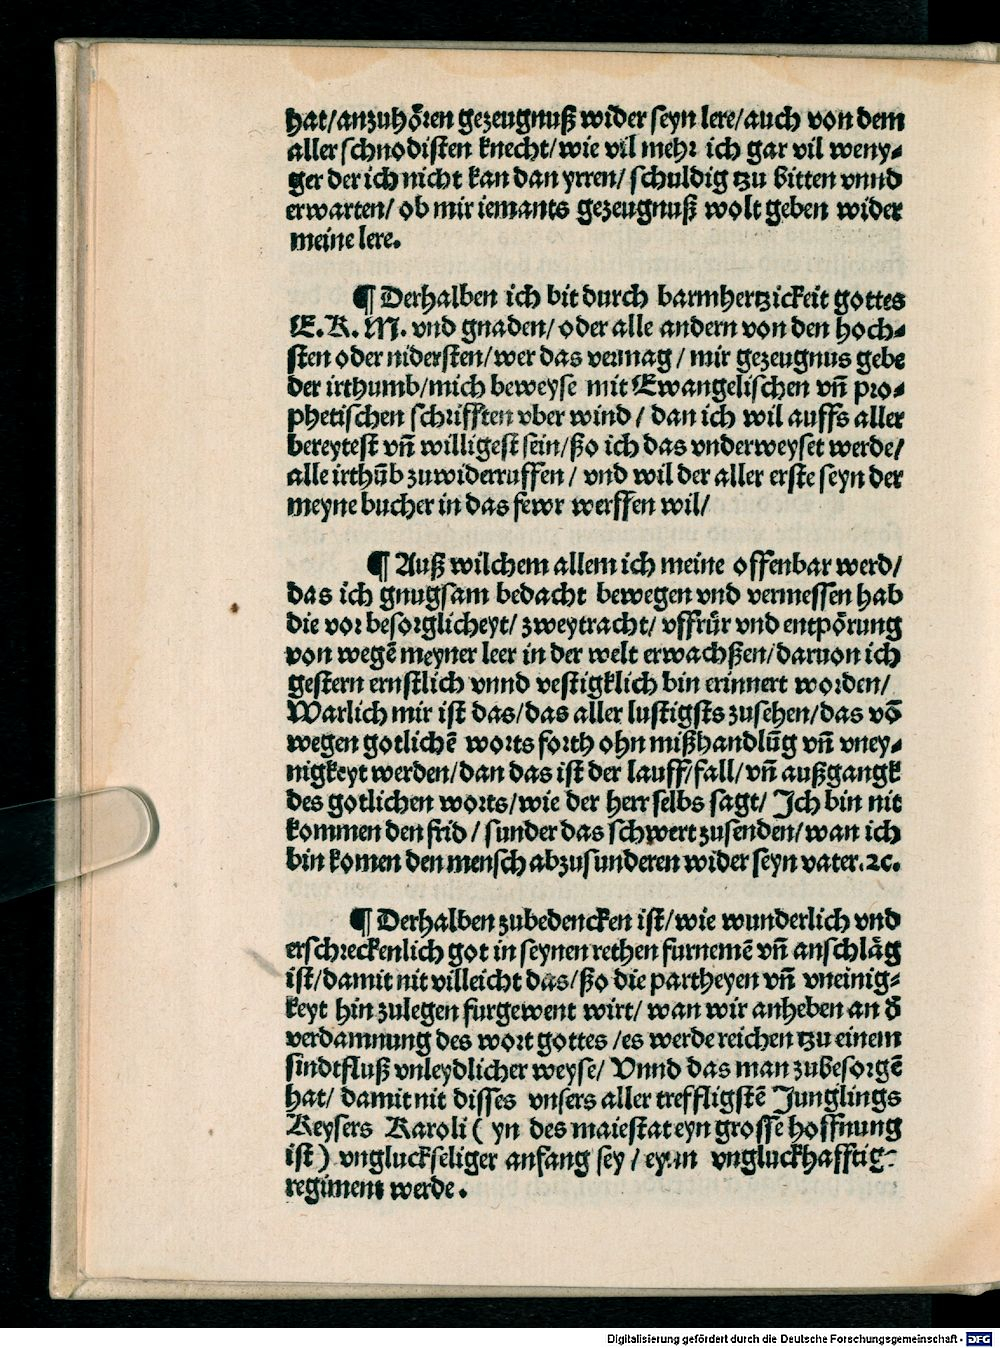 hat/anzuhoͤren gezeugnuß wider seyn lere/auch von dem
aller schnodisten knecht/wie vil mehr ich gar vil weny⸗
ger der ich nicht kan dan yrren/ schuldig tzu bitten vnnd
erwarten/ ob mir iemants gezeugnuß wolt geben wider
meine lere.
¶ Derhalben ich bit durch barmhertzickeit gottes
E. K. M. vnd gnaden/ oder alle andern von den hoch⸗
sten oder nidersten/wer das vermag / mir gezeugnus gebe
der irthumb/mich beweyse mit Ewangelischen vn̄ pro⸗
phetischen schrifften vber wind / dan ich wil auffs aller
bereytest vn̄ willigest sein/ßo ich das vnderweyset werde/
alle irthūb zuwiderruffen / vnd wil der aller erste seyn der
meyne bucher in das fewr werffen wil/
¶ Auß wilchem allem ich meine offenbar werd/
das ich gnugsam bedacht bewegen vnd vermessen hab
die vor besorglicheyt/ zweytracht/ vffruͤr vnd entpoͤrung
von wegē meyner leer in der welt erwachßen/daruon ich
gestern ernstlich vnnd vestigklich bin erinnert worden/
Warlich mir ist das/das aller lustigsts zusehen/das vō
wegen gotlichē worts forth ohn mißhandlūg vn̄ vney⸗
nigkeyt werden/dan das ist der lauff/fall/vn̄ außgangk
des gotlichen worts/wie der herr selbs sagt/ Ich bin nit
kommen den frid / sunder das schwert zusenden/wan ich
bin komen den mensch abzusunderen wider seyn vater.ꝛc.
¶ Derhalben zubedencken ist/wie wunderlich vnd
erschreckenlich got in seynen rethen furnemē vn̄ anschlāg
ist/damit nit villeicht das/ßo die partheyen vn̄ vneinig⸗
keyt hin zulegen furgewent wirt/ wan wir anheben an d̄
verdamnung des wort gottes /es werde reichen tzu einem
sindtfluß vnleydlicher weyse/ Vnnd das man zubesorgē
hat/ damit nit disses vnsers aller treffligstē Junglings
Keysers Karoli ( yn des maiestat eyn grosse hoffnung
ist ) vngluckseliger anfang sey / eyn vngluckhafftig⸗
regiment werde.
Digitalisierung gefördert durch die Deutsche Forschungsgemeinschaft - DFG